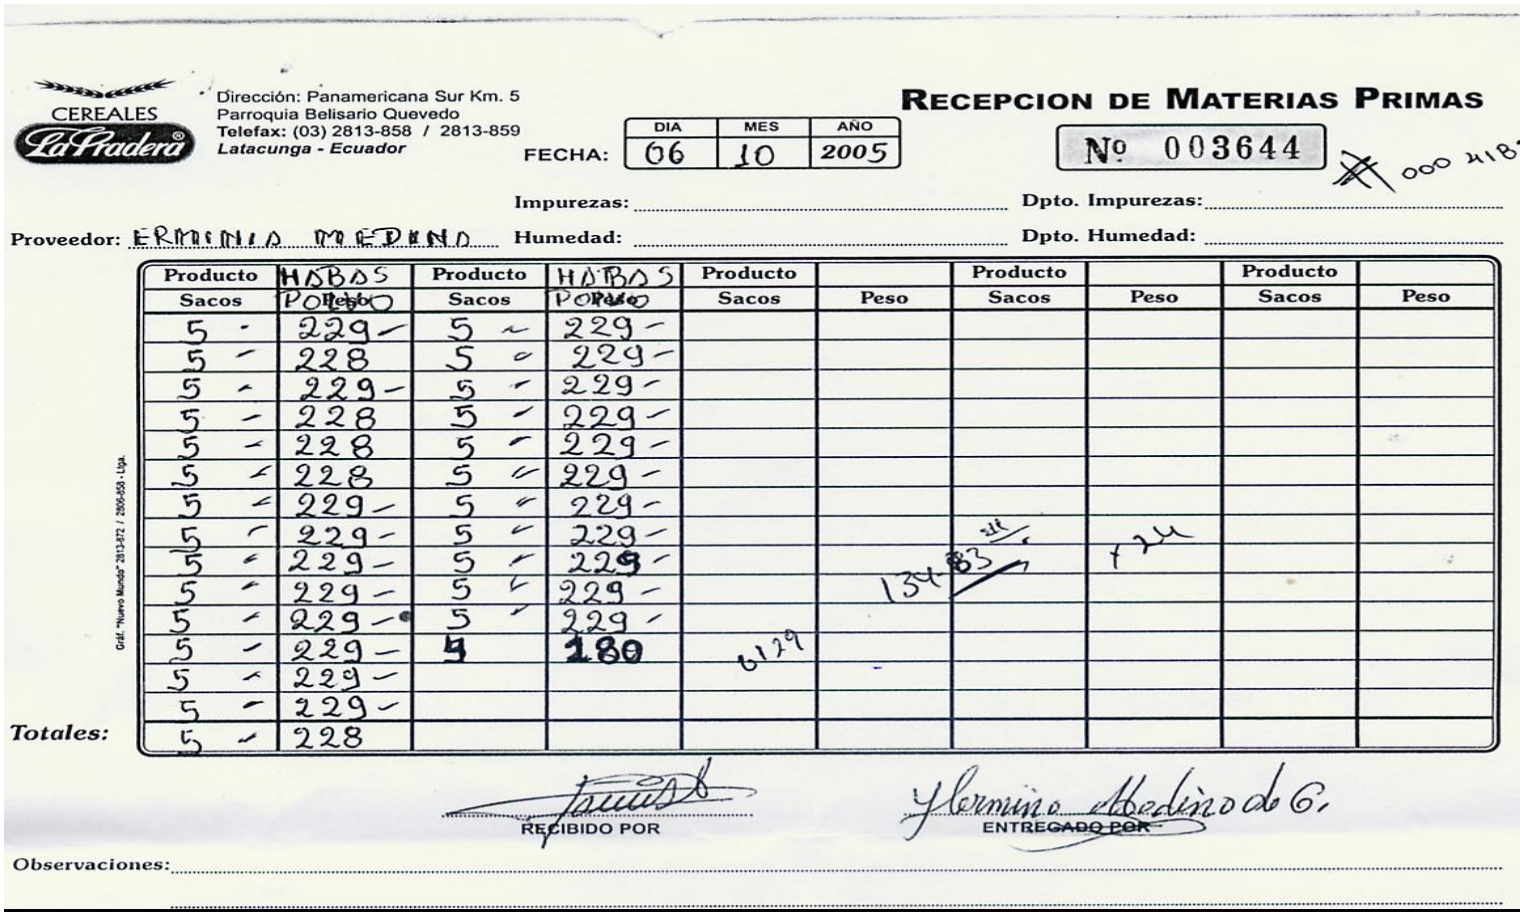 CEREALES
La Pradera®
Dirección: Panamericana Sur Km. 5
Parroquia Belisario Quevedo
Telefax: (03) 2813-858 / 2813-859
Latacunga - Ecuador
RECEPCION DE MATERIAS PRIMAS
FECHA:
DIA MES AÑO
06 10 2005
Nº 003644
000 418
Impurezas: Dpto. Impurezas:
Proveedor: ERMINIA MEDINA Humedad: Dpto. Humedad:
Producto HABAS Producto HABAS Producto Producto Producto
Sacos Peso POLVO Sacos Peso POLVO Sacos Peso Sacos Peso Sacos Peso
5 - 229- 5 - 229-
5 - 228 5 - 229-
5 - 229- 5 - 229-
5 - 228 5 - 229-
5 - 228 5 - 229-
5 - 228 5 - 229-
5 - 229- 5 - 229-
5 - 229- 5 - 229-
5 - 229- 5 - 229-
5 - 229- 5 - 229-
5 - 229- 5 - 229-
5 - 229- 180
5 - 229-
5 - 229-
Totales: 5 - 228
134-83
+ 24
6129
RECIBIDO POR
Herminia Medina de G.
ENTREGADO POR
Observaciones:
Gráf. "Nuevo Mundo" 2813-872 / 2806-858 - Ltga.